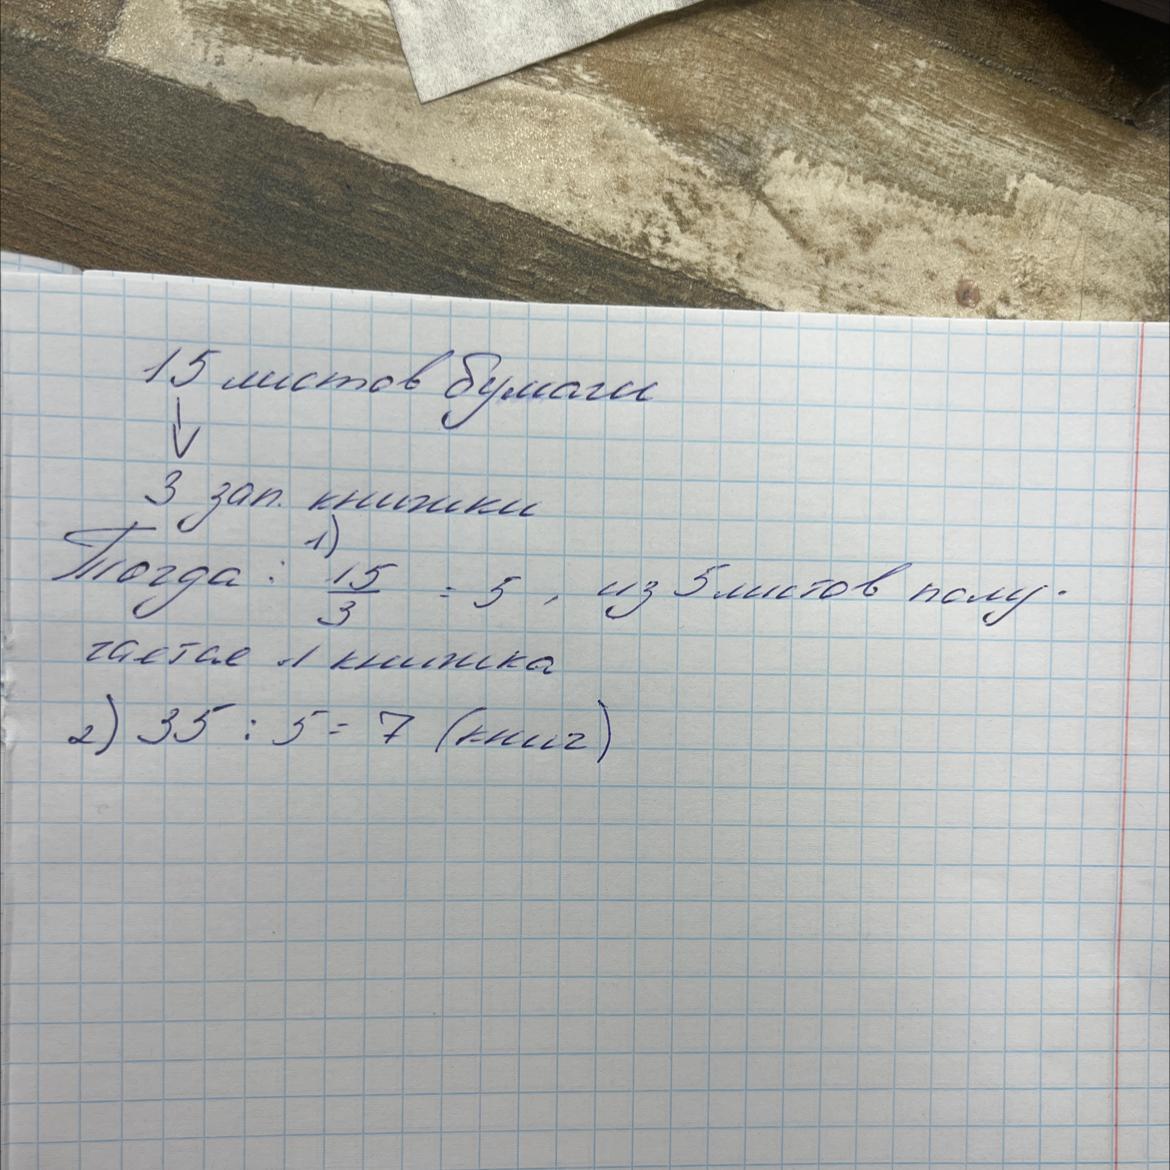 15 листов бумаги
3 зап. книжки
1)
Тогда: 15/3 = 5, из 5 листов полу-
чается 1 книжка
2) 35 : 5 = 7 (книг)